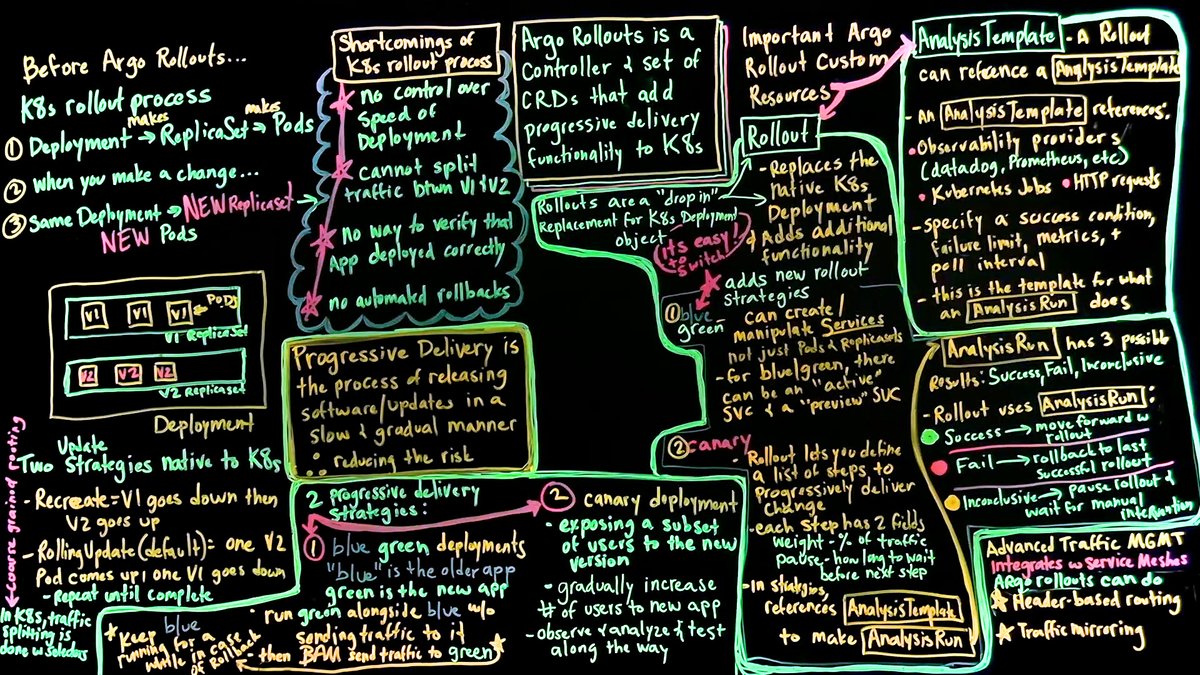 Before Argo Rollouts...
K8s rollout process
① Deployment makes → ReplicaSet makes → Pods
② When you make a change...
③ Same Deployment → NEW Replicaset →
NEW Pods
V1 V1 V1 ← PODS
V1 ReplicaSet
V2 V2 V2
V2 Replicaset
Deployment
Update
Two Strategies native to K8s
- Recreate = V1 goes down then
V2 goes up
- RollingUpdate (default) = one V2
Pod comes up, one V1 goes down
- Repeat until complete
coarse grained routing
In K8s, traffic
splitting is
done w selectors
Shortcomings of
K8s rollout process
no control over
speed of
Deployment
cannot split
traffic btwn V1 & V2
no way to verify that
App deployed correctly
no automated rollbacks
Argo Rollouts is a
Controller & set of
CRDs that add
progressive delivery
functionality to K8s
Progressive Delivery is
the process of releasing
software/updates in a
slow & gradual manner
∴ reducing the risk
2 progressive delivery
strategies:
① blue green deployments
"blue" is the older app
green is the new app
• run green alongside blue w/o
sending traffic to it
• then BAM send traffic to green
Keep blue
running for a
while in case
of Rollback
② canary deployment
• exposing a subset
of users to the new
version
- gradually increase
# of users to new app
- observe & analyze & test
along the way
Important Argo
Rollout Custom
Resources
Rollout
- Replaces the
native K8s
Deployment
& Adds additional
functionality
Rollouts are a "drop in"
Replacement for K8s Deployment
object
it's easy!
to
switch
adds new rollout
strategies
① blue
green
- can create/
manipulate Services
not just Pods & Replicasets
- for blue/green, there
can be an "active"
SVC & a "preview" SVC
② canary
• Rollout lets you define
a list of steps to
Progressively deliver
change
- each step has 2 fields
weight - % of traffic
pause - how long to wait
before next step
- In strategies,
references AnalysisTemplate
to make AnalysisRun
AnalysisTemplate - A Rollout
can reference a AnalysisTemplate
- An AnalysisTemplate references:
• Observability providers
(datadog, Prometheus, etc)
• Kubernetes Jobs • HTTP requests
- specify a success condition,
failure limit, metrics, +
poll interval
- this is the template for what
an AnalysisRun does
AnalysisRun has 3 possible
Results: Success, Fail, Inconclusive
- Rollout uses AnalysisRun:
Success → move forward w
rollout
Fail → rollback to last
successful rollout
Inconclusive → pause rollout &
wait for manual
intervention
Advanced Traffic MGMT
Integrates w Service Meshes
Argo rollouts can do
Header-based routing
Traffic mirroring